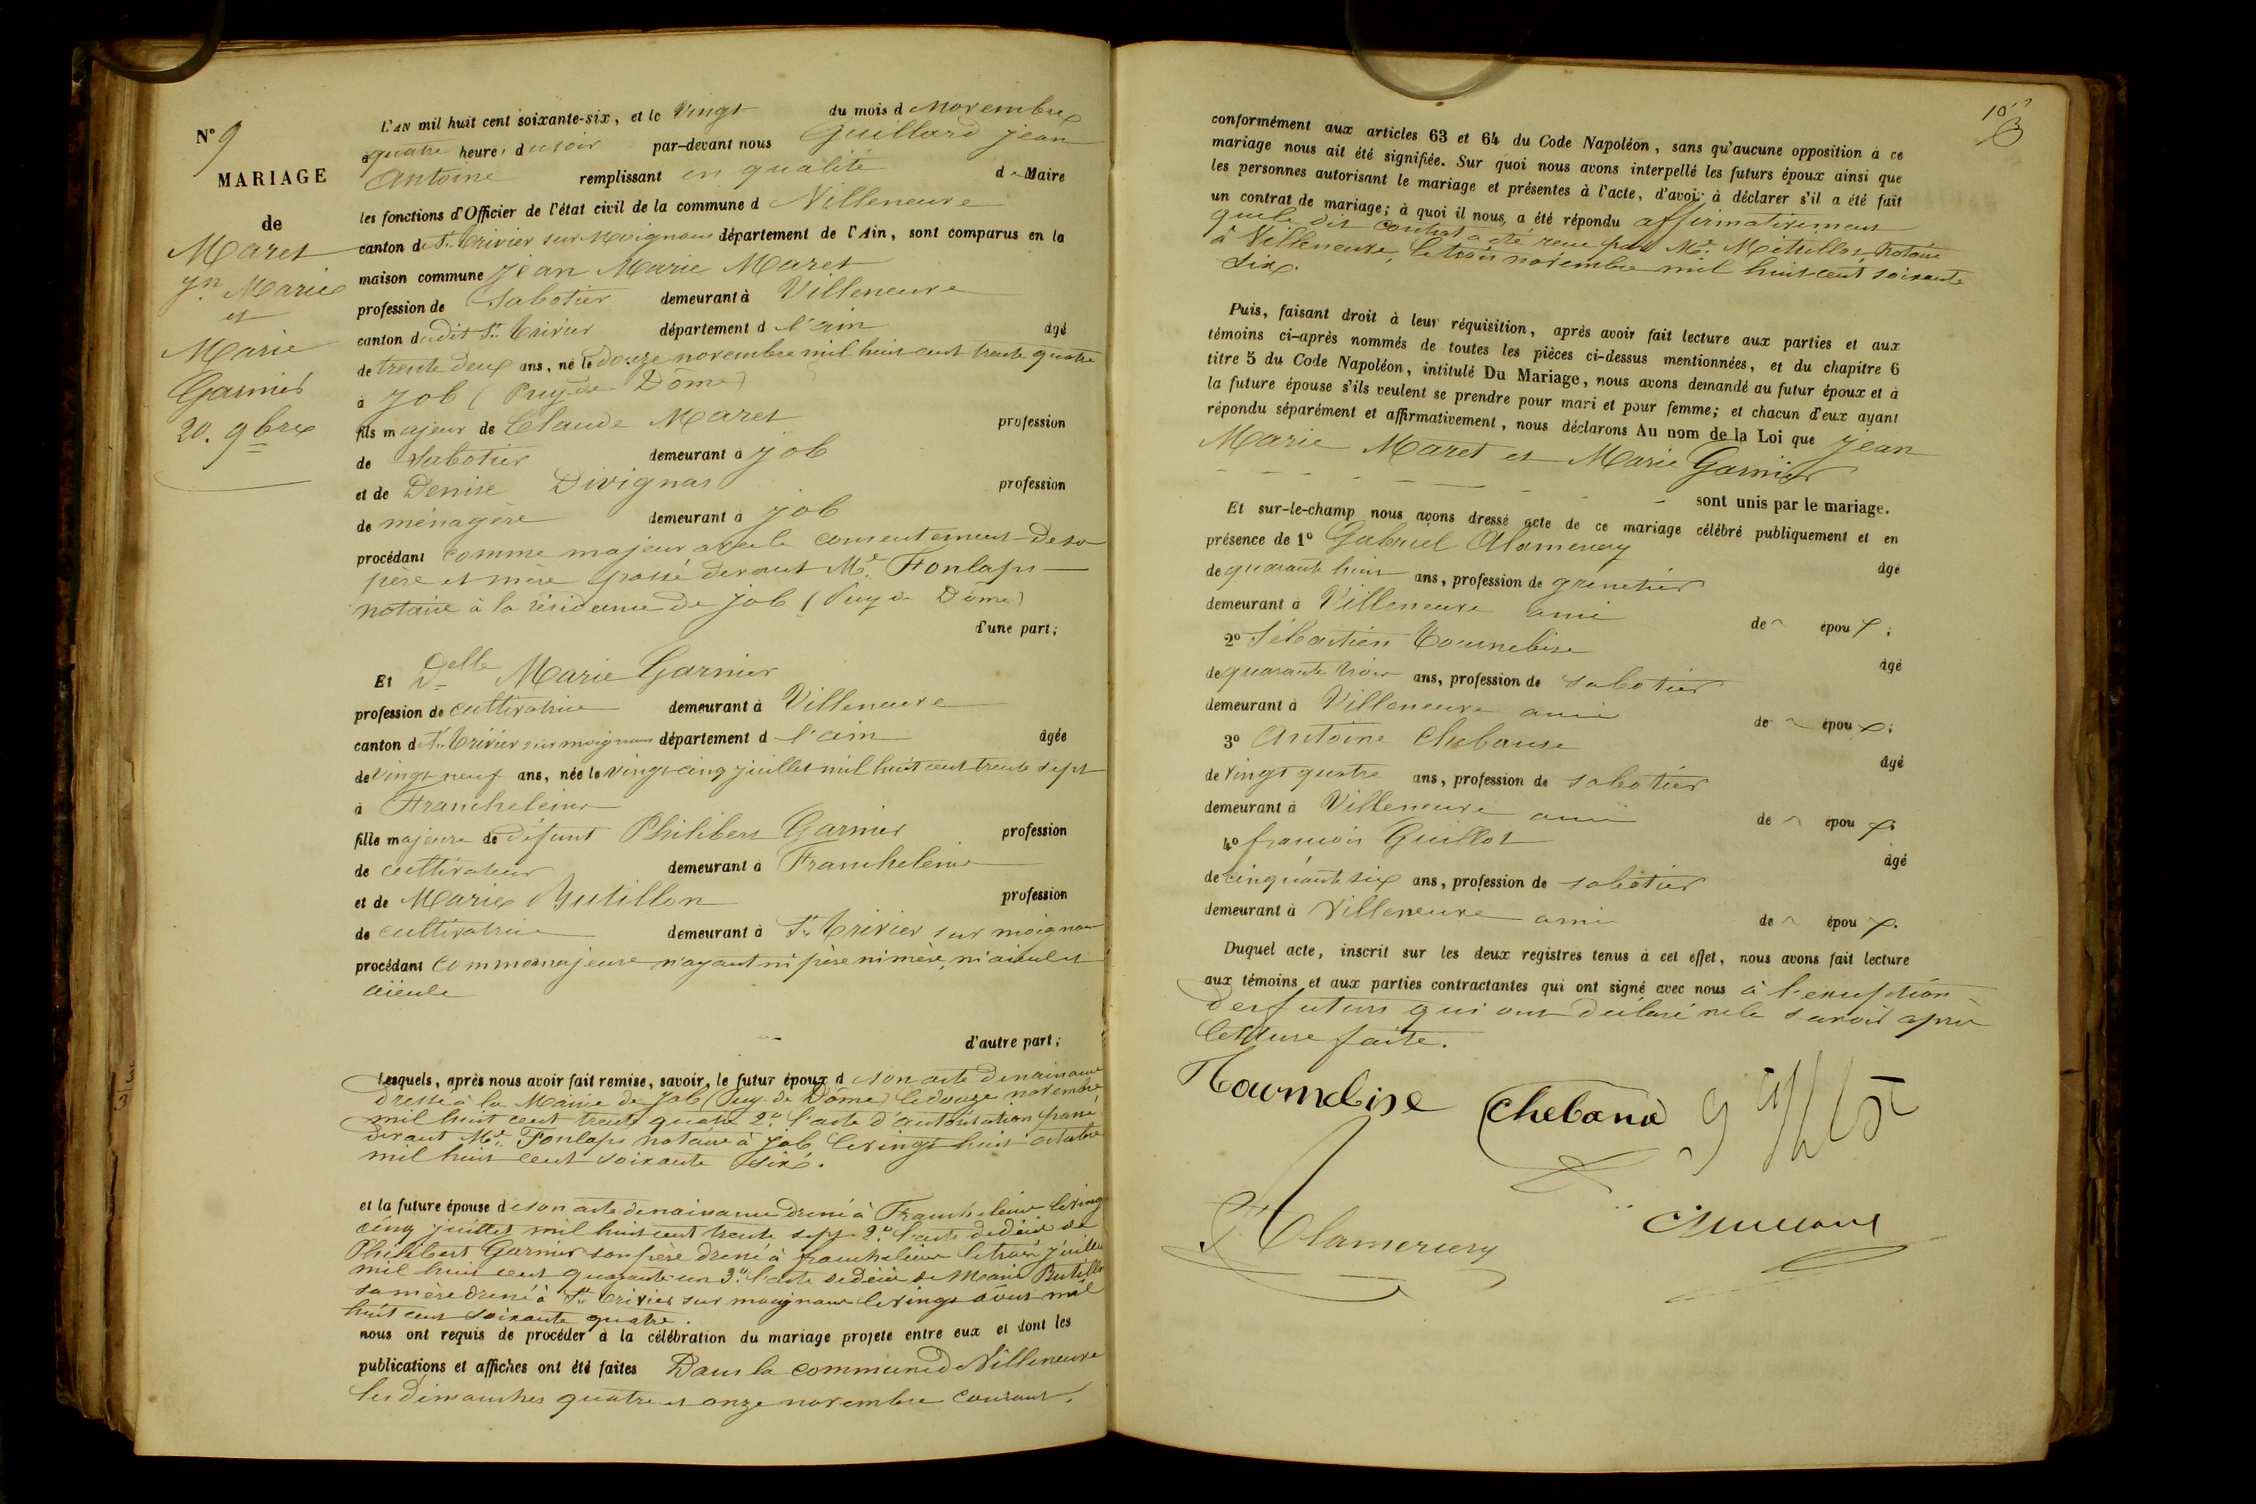 N° 9
MARIAGE
de
Maret
Jn Marie
et
Marie
Garnier
20. 9bre
L'AN mil huit cent soixante-six, et le vingt du mois de Novembre
à quatre heures du soir par-devant nous Guillard Jean
Antoine remplissant en qualité de Maire
les fonctions d'Officier de l'état civil de la commune d Villeneuve
canton de St Trivier sur Moignans département de l'Ain, sont comparus en la
maison commune Jean Marie Maret
profession de Sabotier demeurant à Villeneuve
canton dudit St Trivier département d l'ain âgé
de trente deux ans, né le douze novembre mil huit cent trente quatre
à Job (Puy-de Dôme)
fils majeur de Claude Maret profession
de Sabotier demeurant à Job
et de Denise Divignas profession
de ménagère demeurant à Job
procédant comme majeur avec le consentement de sa
père et mère passé devant Me Fonlaps
notaire à la résidence de Job (Puy de Dôme)
d'une part;
Et Delle Marie Garnier
profession de cultivatrice demeurant à Villeneuve
canton de St Trivier sur moignans département d l'ain âgée
de vingt neuf ans, née le vingt cinq juillet mil huit cent trente sept
à Francheleins
fille majeure de défunt Philibert Garnier profession
de cultivateur demeurant à Francheleins
et de Marie Butillon profession
de cultivatrice demeurant à St Trivier sur moignans
procédant comme majeure n'ayant ni père ni mère, ni aieul et
aïeule
d'autre part;
Lesquels, après nous avoir fait remise, savoir, le futur époux d son acte de naissance
dressé à la Mairie de Job (Puy-de Dôme) le douze novembre
mil huit cent trente quatre 2° l'acte d'autorisation passé
devant Me Fonlaps notaire à Job le vingt huit octobre
mil huit cent soixante six.
et la future épouse de son acte de naissance dressé à Francheleins le vingt
cinq juillet mil huit cent trente sept 2° l'acte de décès de
Philibert Garnier son père dressé à francheleins le trois juillet
mil huit cent quarante un 3° l'acte de décès de Marie Butillon
sa mère dressé à St Trivier sur moignans le vingt août mil
huit cent soixante quatre.
nous ont requis de procéder à la célébration du mariage projeté entre eux et dont les
publications et affiches ont été faites Dans la commune de Villeneuve
les dimanches quatre et onze novembre courant.
10
conformément aux articles 63 et 64 du Code Napoléon, sans qu'aucune opposition à ce
mariage nous ait été signifiée. Sur quoi nous avons interpellé les futurs époux ainsi que
les personnes autorisant le mariage et présentes à l'acte, d'avoir à déclarer s'il a été fait
un contrat de mariage; à quoi il nous a été répondu affirmativement
que le dit contrat a été reçu par Me Mitrillot Notaire
à Villeneuve, le trois novembre mil huit cent soixante
Six.
Puis, faisant droit à leur réquisition, après avoir fait lecture aux parties et aux
témoins ci-après nommés de toutes les pièces ci-dessus mentionnées, et du chapitre 6
titre 5 du Code Napoléon, intitulé Du Mariage, nous avons demandé au futur époux et à
la future épouse s'ils veulent se prendre pour mari et pour femme; et chacun d'eux ayant
répondu séparément et affirmativement, nous déclarons Au nom de la Loi que Jean
Marie Maret et Marie Garnier
sont unis par le mariage.
Et sur-le-champ nous avons dressé acte de ce mariage célébré publiquement et en
présence de 1° Gabriel Alamercery
âgé
de quarante huit ans, profession de grenetier
demeurant à Villeneuve ami de épou ;
2° Sébastien Tournebise
âgé
de quarante trois ans, profession de sabotier
demeurant à Villeneuve ami de épou ;
3° Antoine Chebause
âgé
de vingt quatre ans, profession de sabotier
demeurant à Villeneuve ami de épou
4° francois Guillot
âgé
de cinquante six ans, profession de sabotier
demeurant à Villeneuve ami de épou .
Duquel acte, inscrit sur les deux registres tenus à cet effet, nous avons fait lecture
aux témoins et aux parties contractantes qui ont signé avec nous à l'exception
des futurs qui ont déclaré ne le savoir après
lecture faite.
Tournebise Chebance
Alamercery